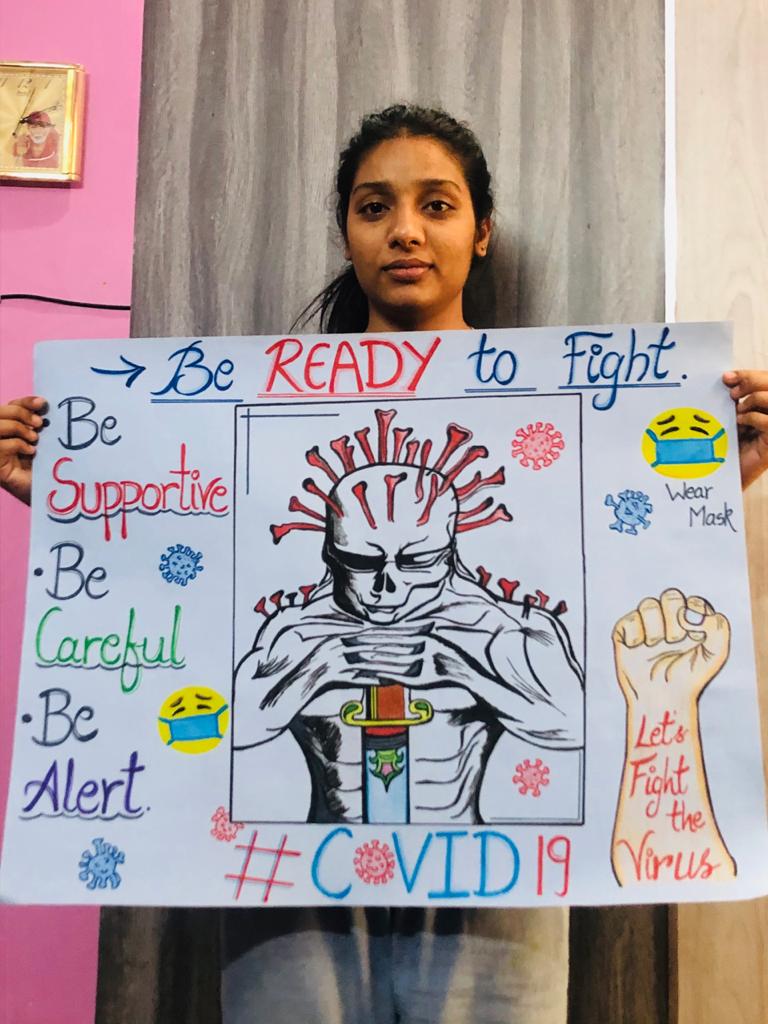 → Be READY to Fight.
• Be
Supportive
• Be
Careful
• Be
Alert.
Wear
Mask
Let's
Fight
the
Virus
#COVID19